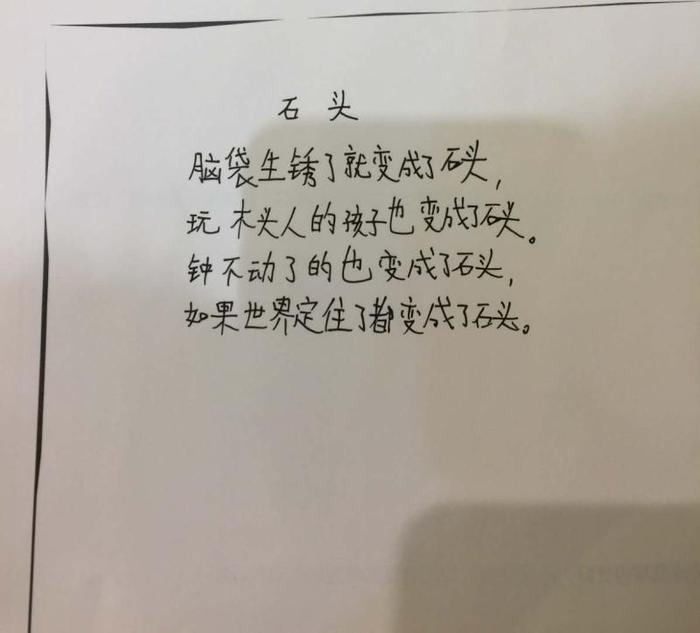 石头
脑袋生锈了就变成了石头，
玩木头人的孩子也变成了石头。
钟不动了的也变成了石头，
如果世界定住了都变成了石头。